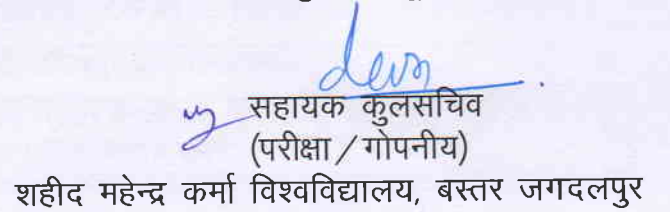 सहायक कुलसचिव
(परीक्षा / गोपनीय)
शहीद महेन्द्र कर्मा विश्वविद्यालय, बस्तर जगदलपुर